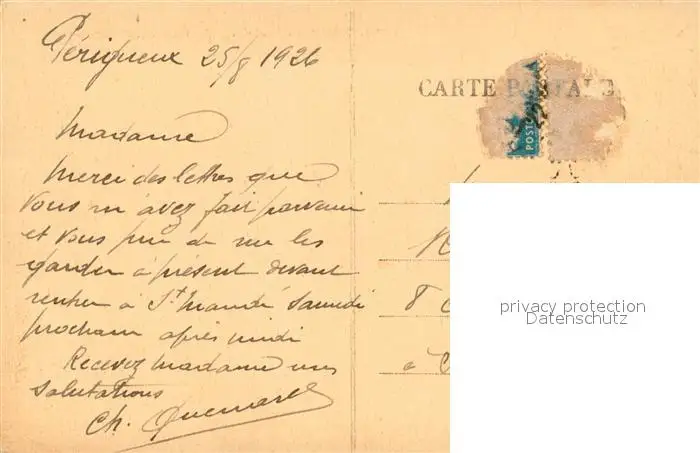 Périgueux 25/8 1926
CARTE POSTALE
POSTES
Madame
Merci des lettres que
vous m'avez fait parvenir
et vous prie de me les
garder à présent devant
rentrer à St Mandé Samedi
prochain après midi
Recevez Madame mes
salutations
Ch.
8
à
privacy protection
Datenschutz